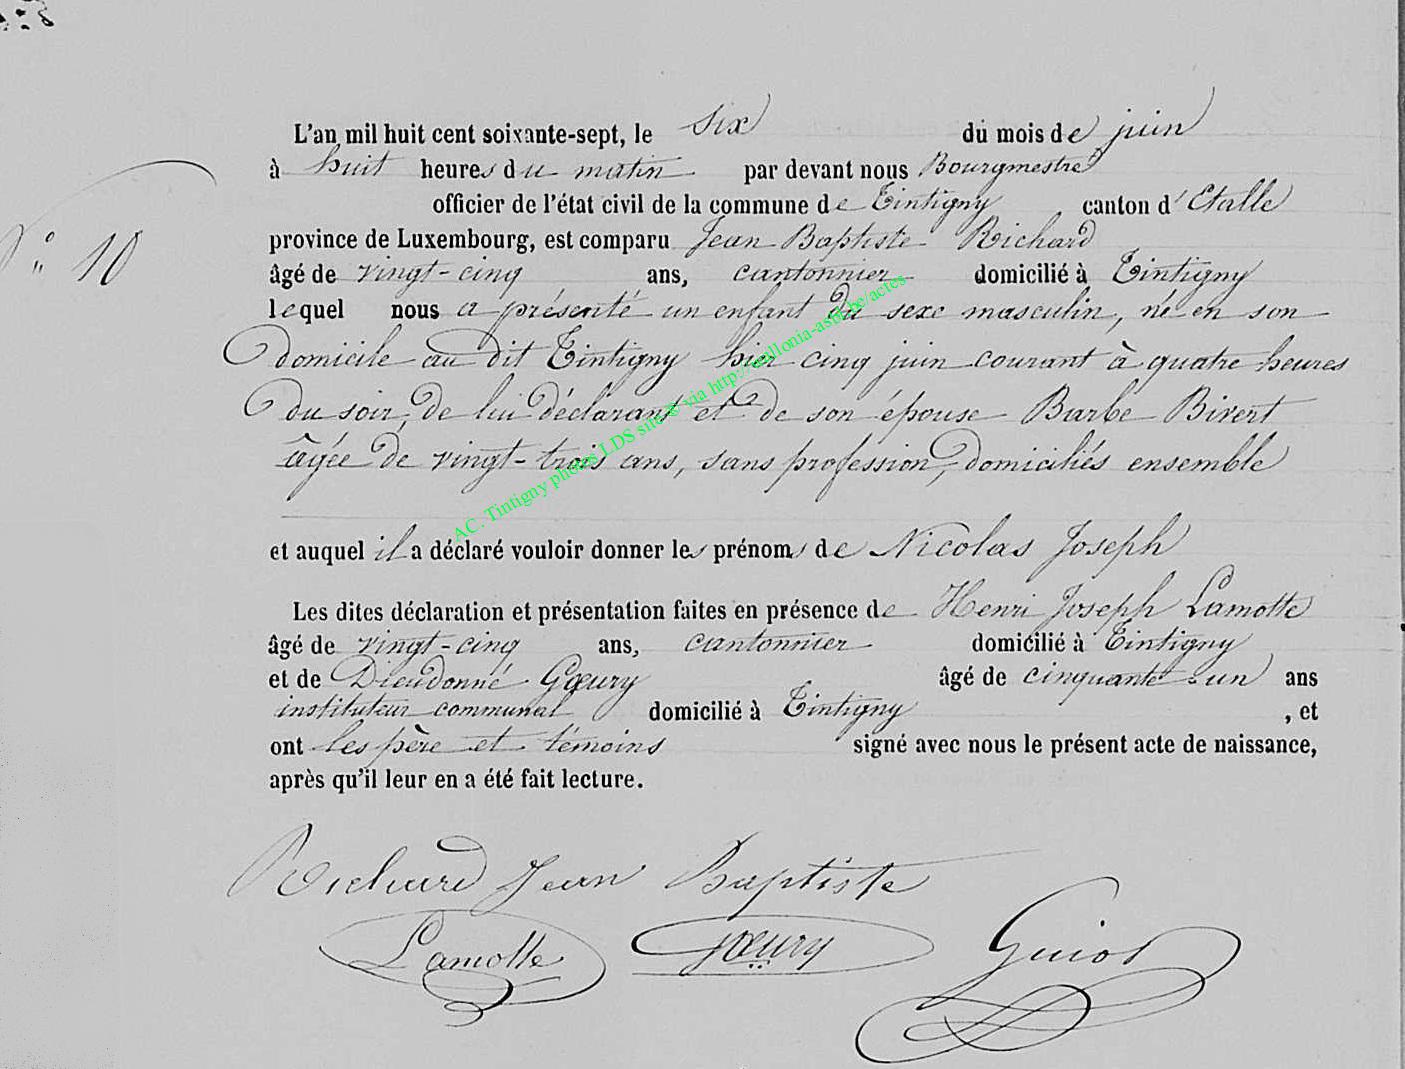 L'an mil huit cent soixante-sept, le six du mois de juin
à huit heures du matin par devant nous Bourgmestre
officier de l'état civil de la commune de Tintigny canton d'Etalle
N° 10
province de Luxembourg, est comparu Jean Baptiste Richard
âgé de vingt-cinq ans, cantonnier domicilié à Tintigny
lequel nous a présenté un enfant du sexe masculin, né en son
domicile au dit Tintigny hier cinq juin courant à quatre heures
du soir, de lui déclarant et de son épouse Barbe Bivert
âgée de vingt-trois ans, sans profession, domiciliés ensemble
AC. Tintigny photos LDS site © via http://wallonia-asbl.be/actes
et auquel il a déclaré vouloir donner les prénoms de Nicolas Joseph
Les dites déclaration et présentation faites en présence de Henri Joseph Lamotte
âgé de vingt-cinq ans, cantonnier domicilié à Tintigny
et de Dieudonné Gœury âgé de cinquante-un ans
instituteur communal domicilié à Tintigny , et
ont les père et témoins signé avec nous le présent acte de naissance,
après qu'il leur en a été fait lecture.
Richard Jean Baptiste
Lamotte Gœury Guiot